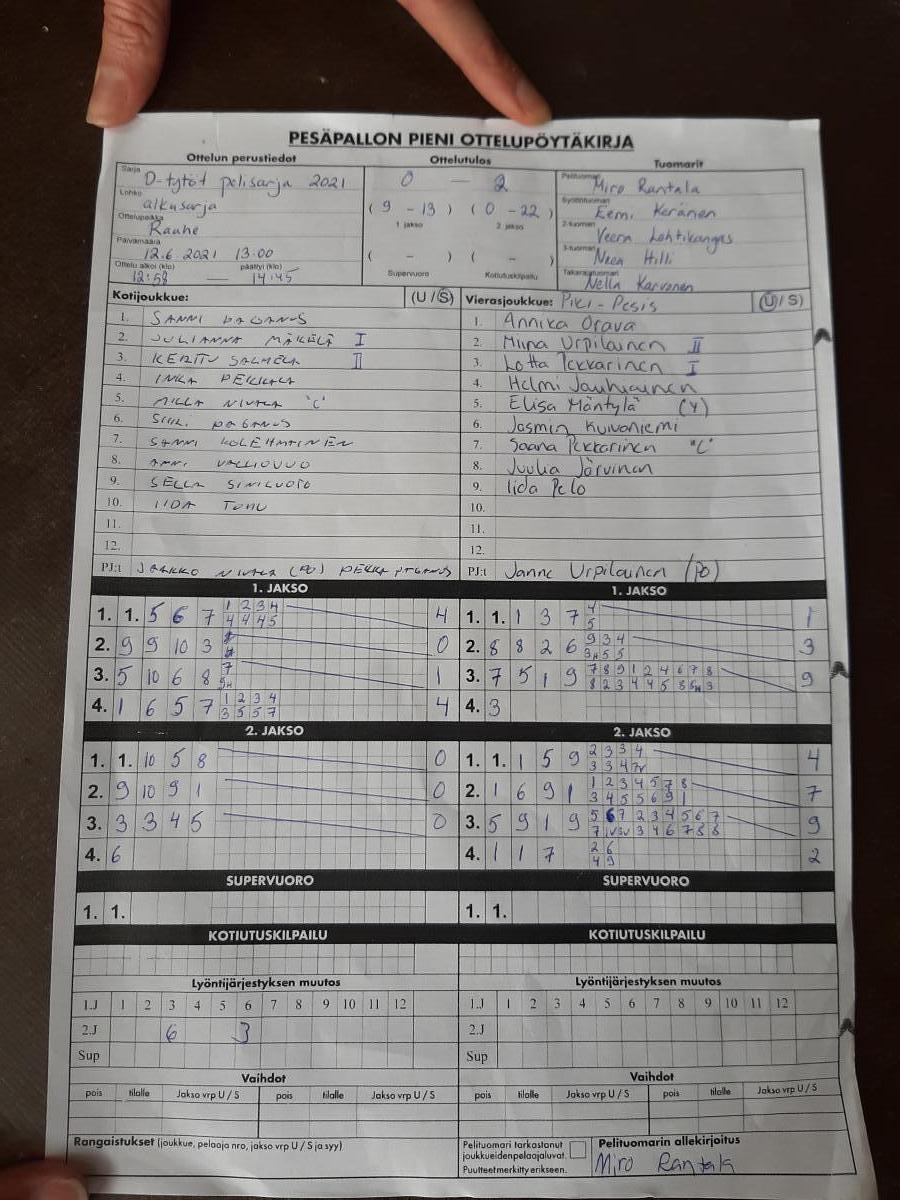 PESÄPALLON PIENI OTTELUPÖYTÄKIRJA
Ottelun perustiedot Ottelutulos Tuomarit
Sarja D-tytöt pelisarja 2021
Lohko alkusarja
Ottelupaikka Raahe
Päivämäärä 12.6.2021 13:00
Ottelu alkoi (klo) päättyi (klo)
12:58 — 14:45
0 — 2
(9 - 13) (0 - 22)
1 jakso 2. jakso
( - ) ( - )
Supervuoro Kotiutuskilpailu
Pelituomari Miro Rantala
Syöttötuomari Eemi Keränen
2-tuomari Veera Lahtikangas
3-tuomari Neea Hilli
Takarajatuomari Nella Karvonen
Kotijoukkue: (U/S)
1. SANNI PAGANUS
2. JULIANNA MÄKELÄ I
3. KERTTU SALMELA II
4. INKA PEKKALA
5. MILLA NIVALA "C"
6. SIIRI PAGANUS
7. SANNI KOLEHMAINEN
8. ANNI
9. SELLA
10. IIDA
11.
12.
PJ:t JAAKKO NIVALA (PO) PEKKA PAGANUS
Vierasjoukkue: Piki-Pesis (U/S)
1. Annika Orava
2. Miina Urpilainen II
3. Lotta Pekkarinen I
4. Helmi Jauhiainen
5. Elisa Mäntylä (Y)
6. Jasmin Kuivaniemi
7. Saana Pekkarinen "C"
8. Juulia Järvinen
9. Iida Pelo
10.
11.
12.
PJ:t Janne Urpilainen (PO)
1. JAKSO
1. 1. 5 6 7 1 2 3 4 4
4 4 4 5
2. 9 9 10 3 0
3. 5 10 6 8 7 1
4. 1 6 5 7 1 2 3 4 4
3 5 5 7
1. JAKSO
1. 1. 1 3 7 4 1
5
2. 8 8 2 6 9 3 4 3
3. 7 5 1 9 7 8 9 1 2 4 6 7 8 9
4. 3
2. JAKSO
1. 1. 10 5 8 0
2. 9 10 9 1 0
3. 3 3 4 5 0
4. 6
2. JAKSO
1. 1. 1 5 9 2 3 3 4 4
2. 1 6 9 1 1 2 3 4 5 7 8 7
3 4 5 5 6 9 1
3. 5 9 1 9 5 6 7 2 3 4 5 6 7 9
4. 1 1 7 2 6 2
4 9
SUPERVUORO
1. 1.
SUPERVUORO
1. 1.
KOTIUTUSKILPAILU
KOTIUTUSKILPAILU
Lyöntijärjestyksen muutos
1.J 1 2 3 4 5 6 7 8 9 10 11 12
2.J 6 3
Sup
Lyöntijärjestyksen muutos
1.J 1 2 3 4 5 6 7 8 9 10 11 12
2.J
Sup
Vaihdot
pois tilalle Jakso vrp U / S pois tilalle Jakso vrp U / S
Vaihdot
pois tilalle Jakso vrp U / S pois tilalle Jakso vrp U / S
Rangaistukset (joukkue, pelaaja nro, jakso vrp U / S ja syy)
Pelituomari tarkastanut
joukkueidenpelaajaluvat.
Puutteet merkitty erikseen.
Pelituomarin allekirjoitus
Miro Rantala